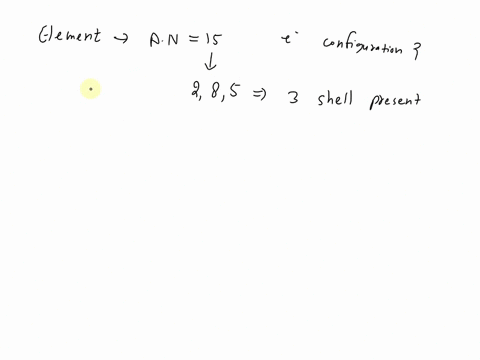 Element → A.N = 15 e⁻ configuration ?
↓
2, 8, 5 ⇒ 3 shell present